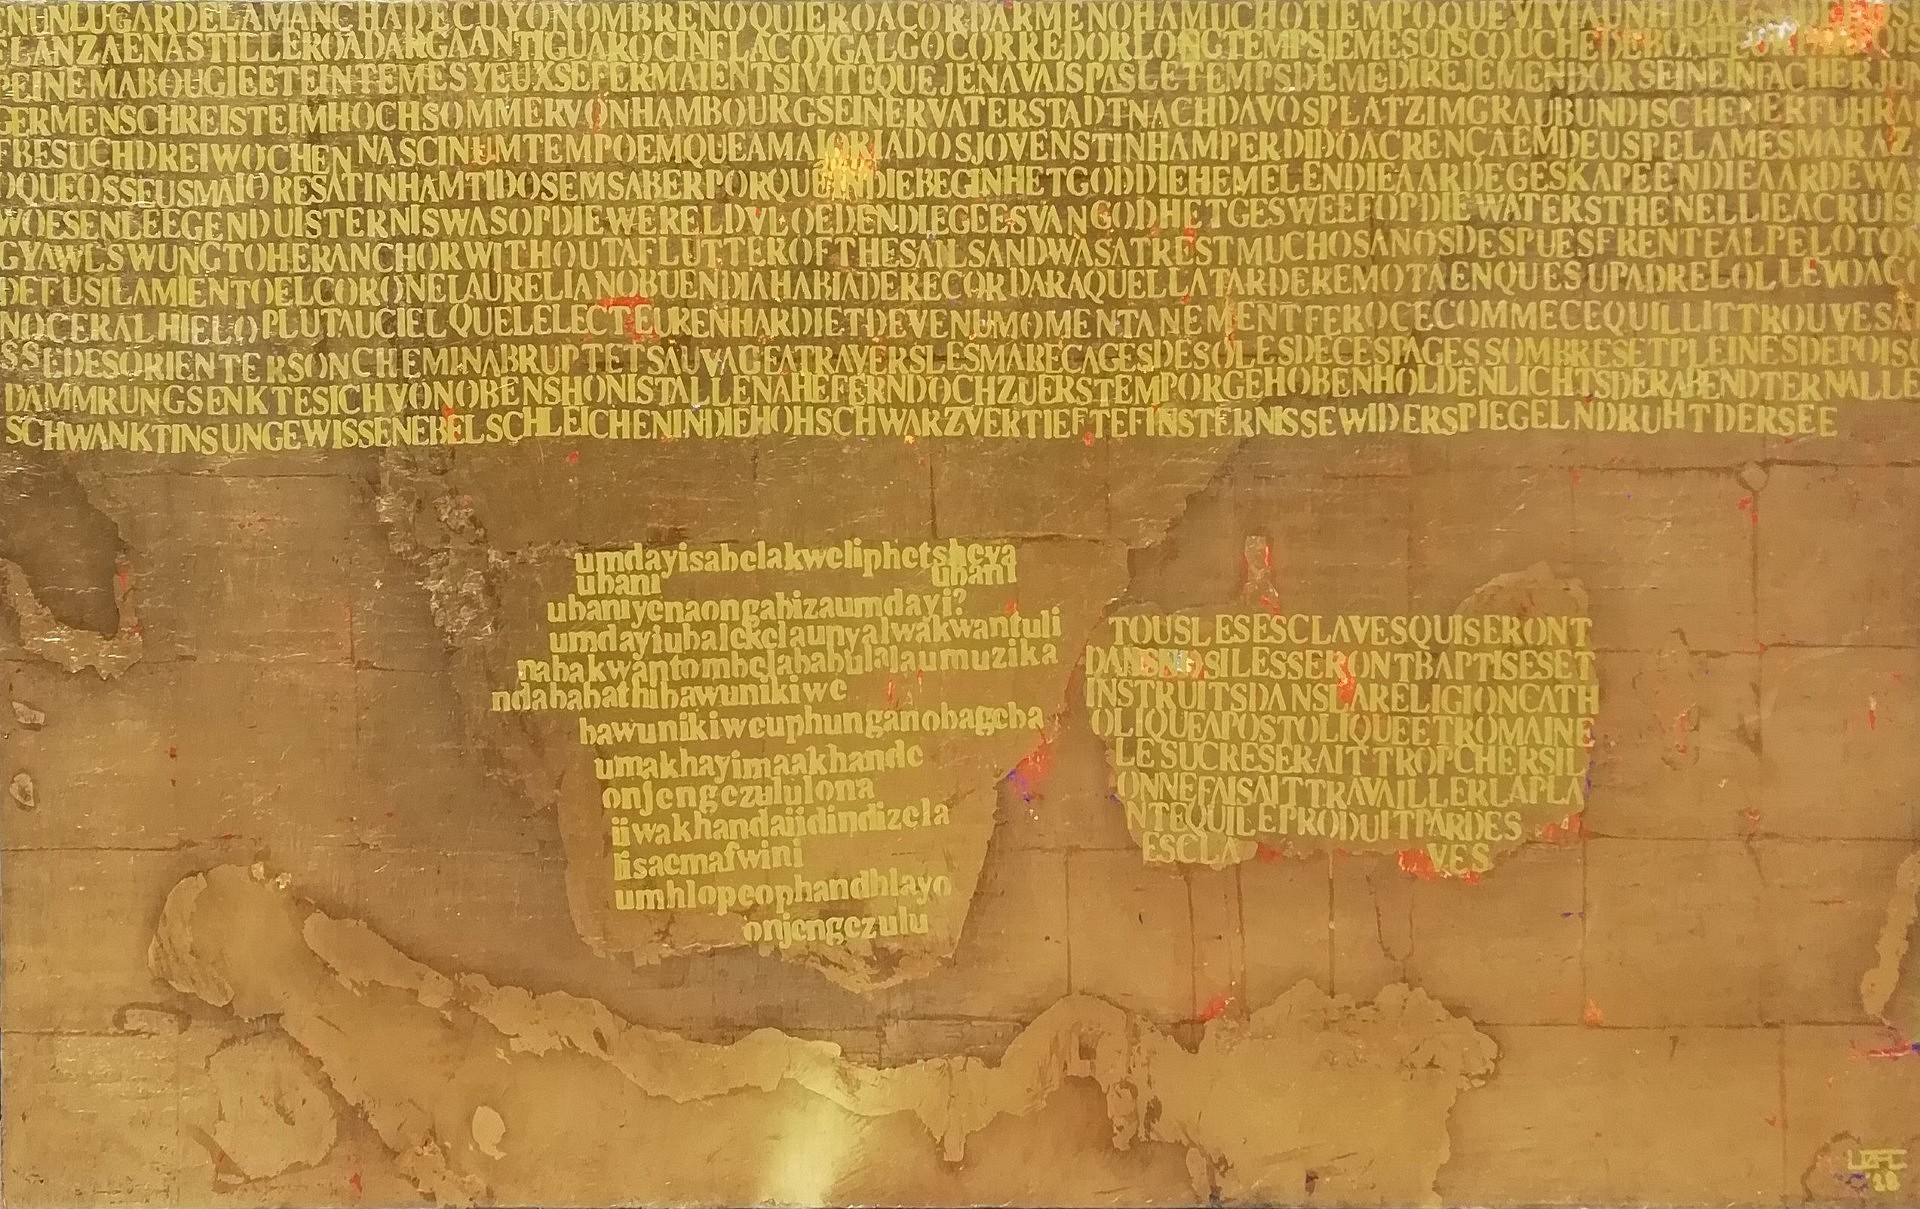 NUNLUGARDELAMANCHADECUYONOMBRENOQUIEROACORDARMENOHAMUCHOTIEMPOQUEVIVIAUNHIDALGODELOS
ELANZAENASTILLEROADARGAANTIGUAROCINFLACOYGALGOCORREDORLONGTEMPSJEMESUISCOUCHEDEBONHE
PEINEMABOUGIEETEINTEMESYEUXSEFERMAIENTSIVITEQUEJENAVAISPASLETEMPSDEMEDIREJEMENDORSEINEINFACHERJUN
GERMENSCHREISTEIMHOCHSOMMERVONHAMBOURGSEINERVATERSTADTNACHDAVOSPLATZIMGRAUBUNDISCHENERFUHRA
FBESUCHDREIWOCHENNASCINUMTEMPOEMQUEAMAIORIADOSJOVENSTINHAMPERDIDOACRENÇAEMDEUSPELAMESMARAZ
OQUEOSSEUSMAIORESATINHAMTIDOSEMSABERPORQUEINDIEBEGINHETGODDIEHEMELENDIEAARDEGESKAPEENDIEAARDEWA
WOESENLEEGENDUISTERNISWASOPDIEWERELDVLOEDENDIEGEESVANGODHETGESWEEFOPDIEWATERSTHENELLIEACRUIS
GYAWLSWUNGTOHERANCHORWITHOUTAFLUTTEROFTHESAILSANDWASATRESTMUCHOSANOSDESPUESFRENTEALPELOTON
DEFUSILAMIENTOELCORONELAURELIANOBUENDIAHABIADERECORDARAQUELLATARDEREMOTAENQUESUPADRELOLLEVOACO
NOCERALHIELOPLUTAUCIELQUELELECTEURENHARDIETDEVENUMOMENTANEMENTFEROCECOMMECEQUILLITTROUVESA
SSEDESORIENTERSONCHEMINABRUPTETSAUVAGEATRAVERSLESMARECAGESDESOLESDECESPAGESSOMBRESETPLEINESDEPOISO
DAMMRUNGSENKTESICHVONOBENSHONISTALLENAHEFERNDOCHZUERSTEMPORGEHOBENHOLDENLICHTSDERABENDTERNALLE
SCHWANKTINSUNGEWISSENEBELSCHLEICHENINDIEHOHSCHWARZVERTIEFTEFINSTERNISSEWIDERSPIEGELNDRUHTDERSEE
umdayisabelakweliphetsheya
ubani ubani
ubaniyenaongabizaumdayi?
umdayiubalekelaunyalwakwantuli
nabakwantombelababulalaumuzika
ndababathibawunikiwe
bawunikiweuphunganobageba
umakhayimaakhande
onjengezululona
iiwakhandaiidindizela
lisaemafwini
umhlopeophandhlayo
onjengezulu
TOUSLESESCLAVESQUISERONT
DANSNOSILESSERONTBAPTISESET
INSTRUITSDANSLARELIGIONCATH
OLIQUEAPOSTOLIQUEETROMAINE
LESUCRESERAITTROPCHERSIL
ONNEFAISAITTRAVAILLERLAPLA
NTEQUILEPRODUITPARDES
ESCLA VES